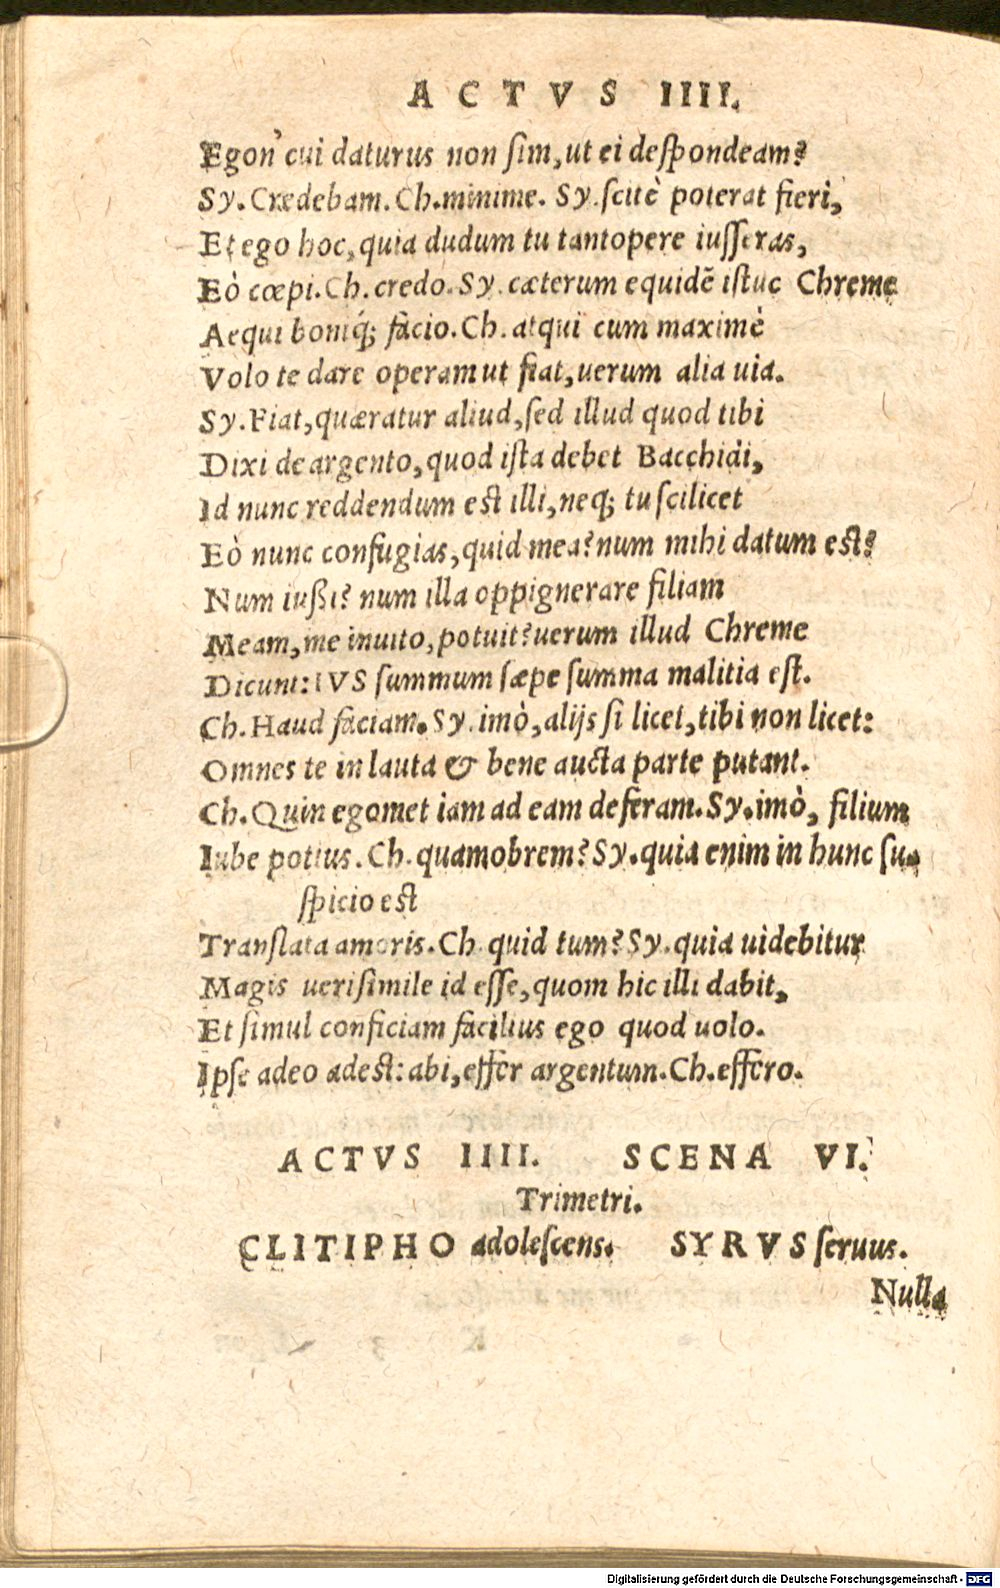 ACTVS IIII.
Egon' cui daturus non sim, ut ei despondeam?
Sy. Credebam. Ch. minime. Sy. scitè poterat fieri,
Et ego hoc, quia dudum tu tantopere iusseras,
Eò cœpi. Ch. credo. Sy. cæterum equidē istuc Chreme
Aequi boniq́; facio. Ch. atqui cum maximè
Volo te dare operam ut fiat, uerum alia uia.
Sy. Fiat, quæratur aliud, sed illud quod tibi
Dixi de argento, quod ista debet Bacchidi,
Id nunc reddendum est illi, neq; tu scilicet
Eò nunc confugias, quid mea? num mihi datum est?
Num iußi? num illa oppignerare filiam
Meam, me inuito, potuit? uerum illud Chreme
Dicunt: IVS summum sæpe summa malitia est.
Ch. Haud faciam. Sy. imò, alijs si licet, tibi non licet:
Omnes te in lauta & bene aucta parte putant.
Ch. Quin egomet iam ad eam deferam. Sy. imò, filium
Iube potius. Ch. quamobrem? Sy. quia enim in hunc su-
spicio est
Translata amoris. Ch. quid tum? Sy. quia uidebitur
Magis uerisimile id esse, quom hic illi dabit,
Et simul conficiam facilius ego quod uolo.
Ipse adeo adest: abi, effer argentum. Ch. effero.
ACTVS IIII. SCENA VI.
Trimetri.
CLITIPHO adolescens. SYRVS seruus.
Nulla
Digitalisierung gefördert durch die Deutsche Forschungsgemeinschaft - DFG